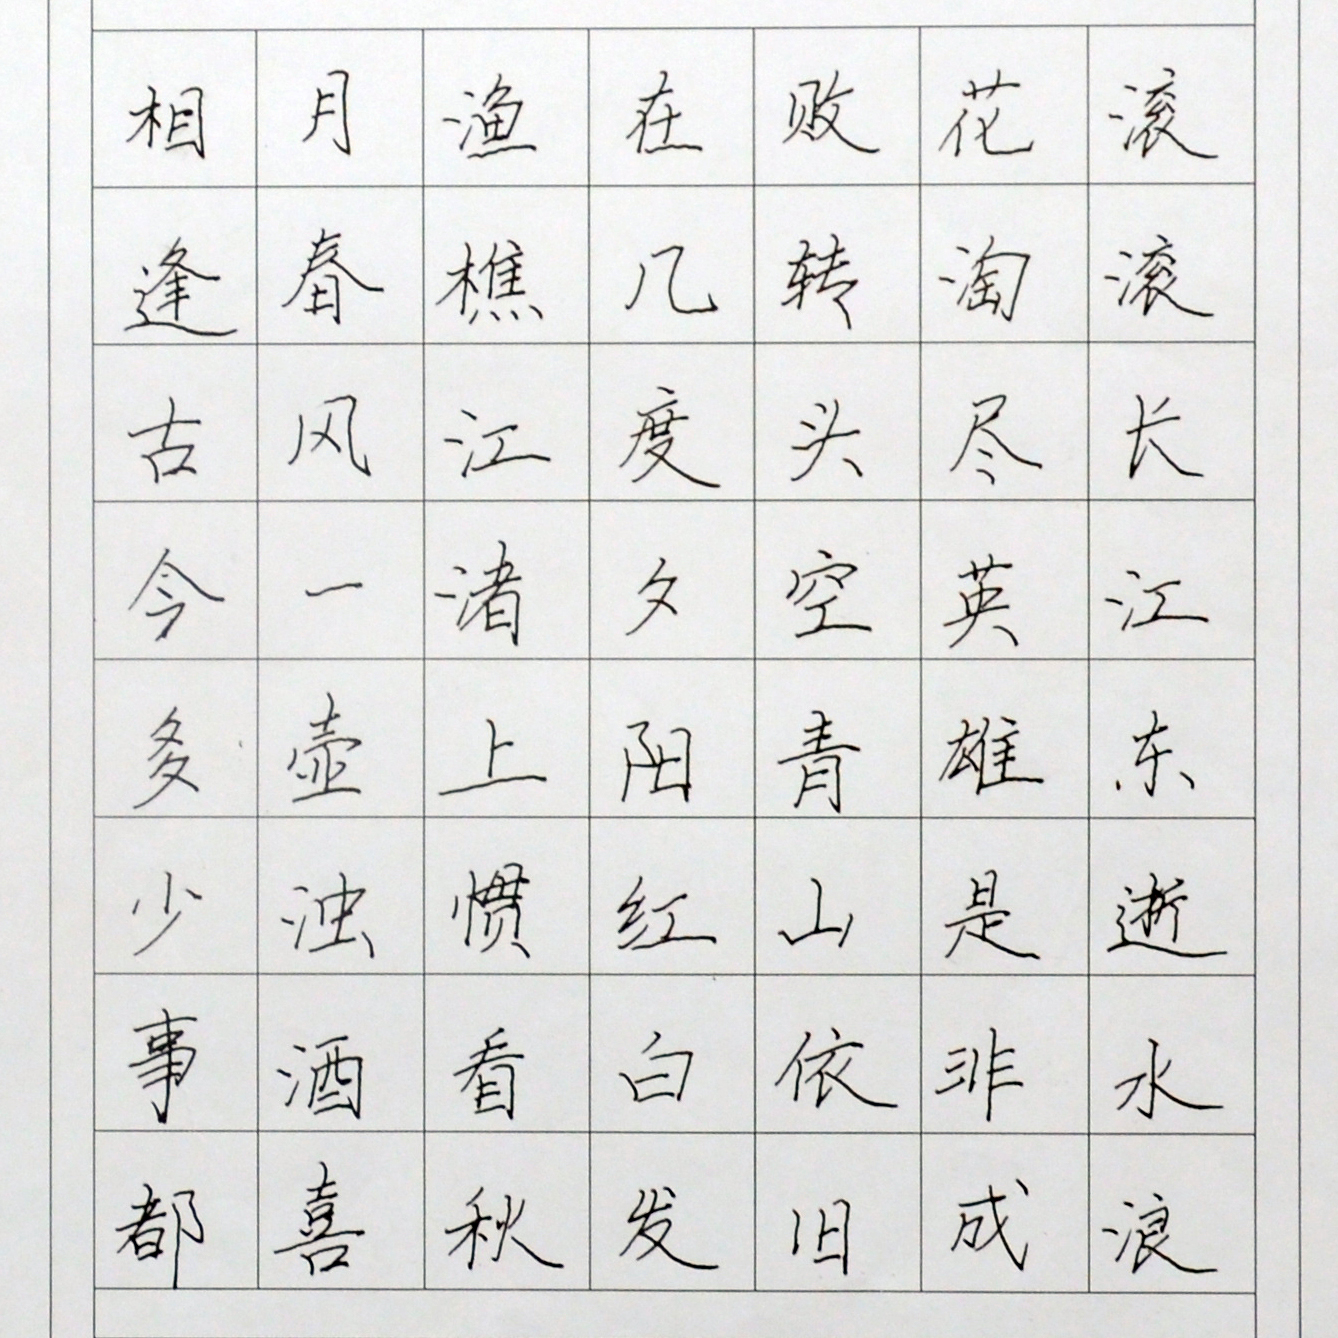 滚滚长江东逝水浪
花淘尽英雄是非成
败转头空青山依旧
在几度夕阳红白发
渔樵江渚上惯看秋
月春风一壶浊酒喜
相逢古今多少事都